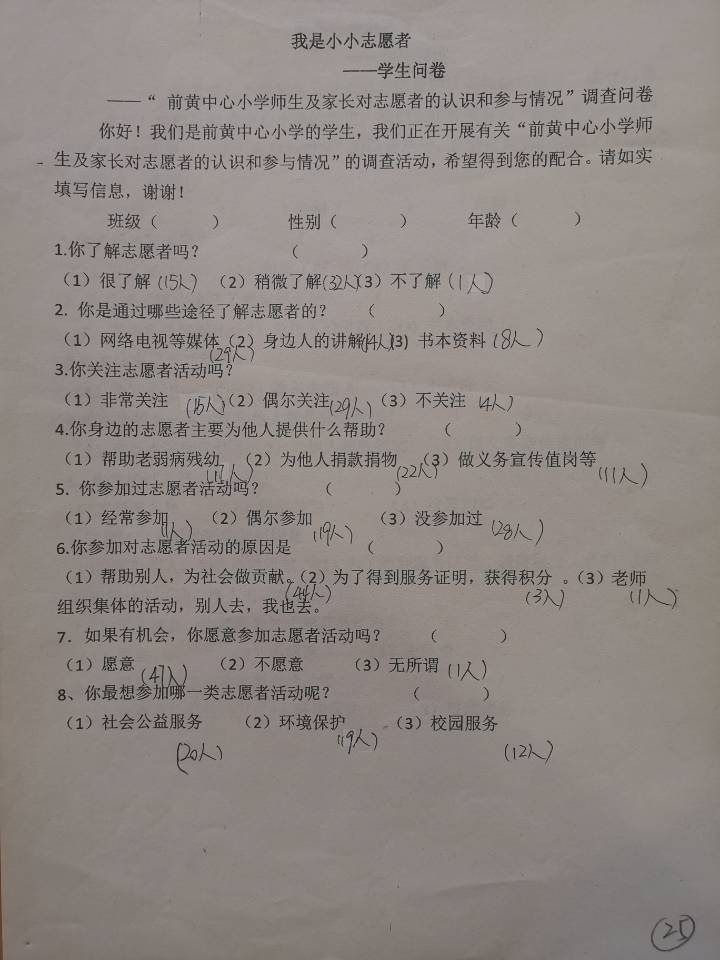 我是小小志愿者
——学生问卷
——“ 前黄中心小学师生及家长对志愿者的认识和参与情况”调查问卷
你好！我们是前黄中心小学的学生，我们正在开展有关“前黄中心小学师
生及家长对志愿者的认识和参与情况”的调查活动，希望得到您的配合。请如实
填写信息，谢谢！
班级（ ） 性别（ ） 年龄（ ）
1.你了解志愿者吗？ （ ）
（1）很了解（15人）（2）稍微了解（32人）（3）不了解（1人）
2. 你是通过哪些途径了解志愿者的？ （ ）
（1）网络电视等媒体（2）身边人的讲解（4人）（3）书本资料（8人）
（29人）
3.你关注志愿者活动吗？
（1）非常关注（15人）（2）偶尔关注（29人）（3）不关注 4人）
4.你身边的志愿者主要为他人提供什么帮助？ （ ）
（1）帮助老弱病残幼 （2）为他人捐款捐物 （3）做义务宣传值岗等
（22人） （11人）
5. 你参加过志愿者活动吗？ （ ）
（1）经常参加 （2）偶尔参加 （3）没参加过
（1人） （19人） （28人）
6.你参加对志愿者活动的原因是 （ ）
（1）帮助别人，为社会做贡献。（2）为了得到服务证明，获得积分 。（3）老师
（44人） （3人） （1人）
组织集体的活动，别人去，我也去。
7. 如果有机会，你愿意参加志愿者活动吗？ （ ）
（1）愿意（47人） （2）不愿意 （3）无所谓（1人）
8、你最想参加哪一类志愿者活动呢？ （ ）
（1）社会公益服务 （2）环境保护 （3）校园服务
（20人） （19人） （12人）
25